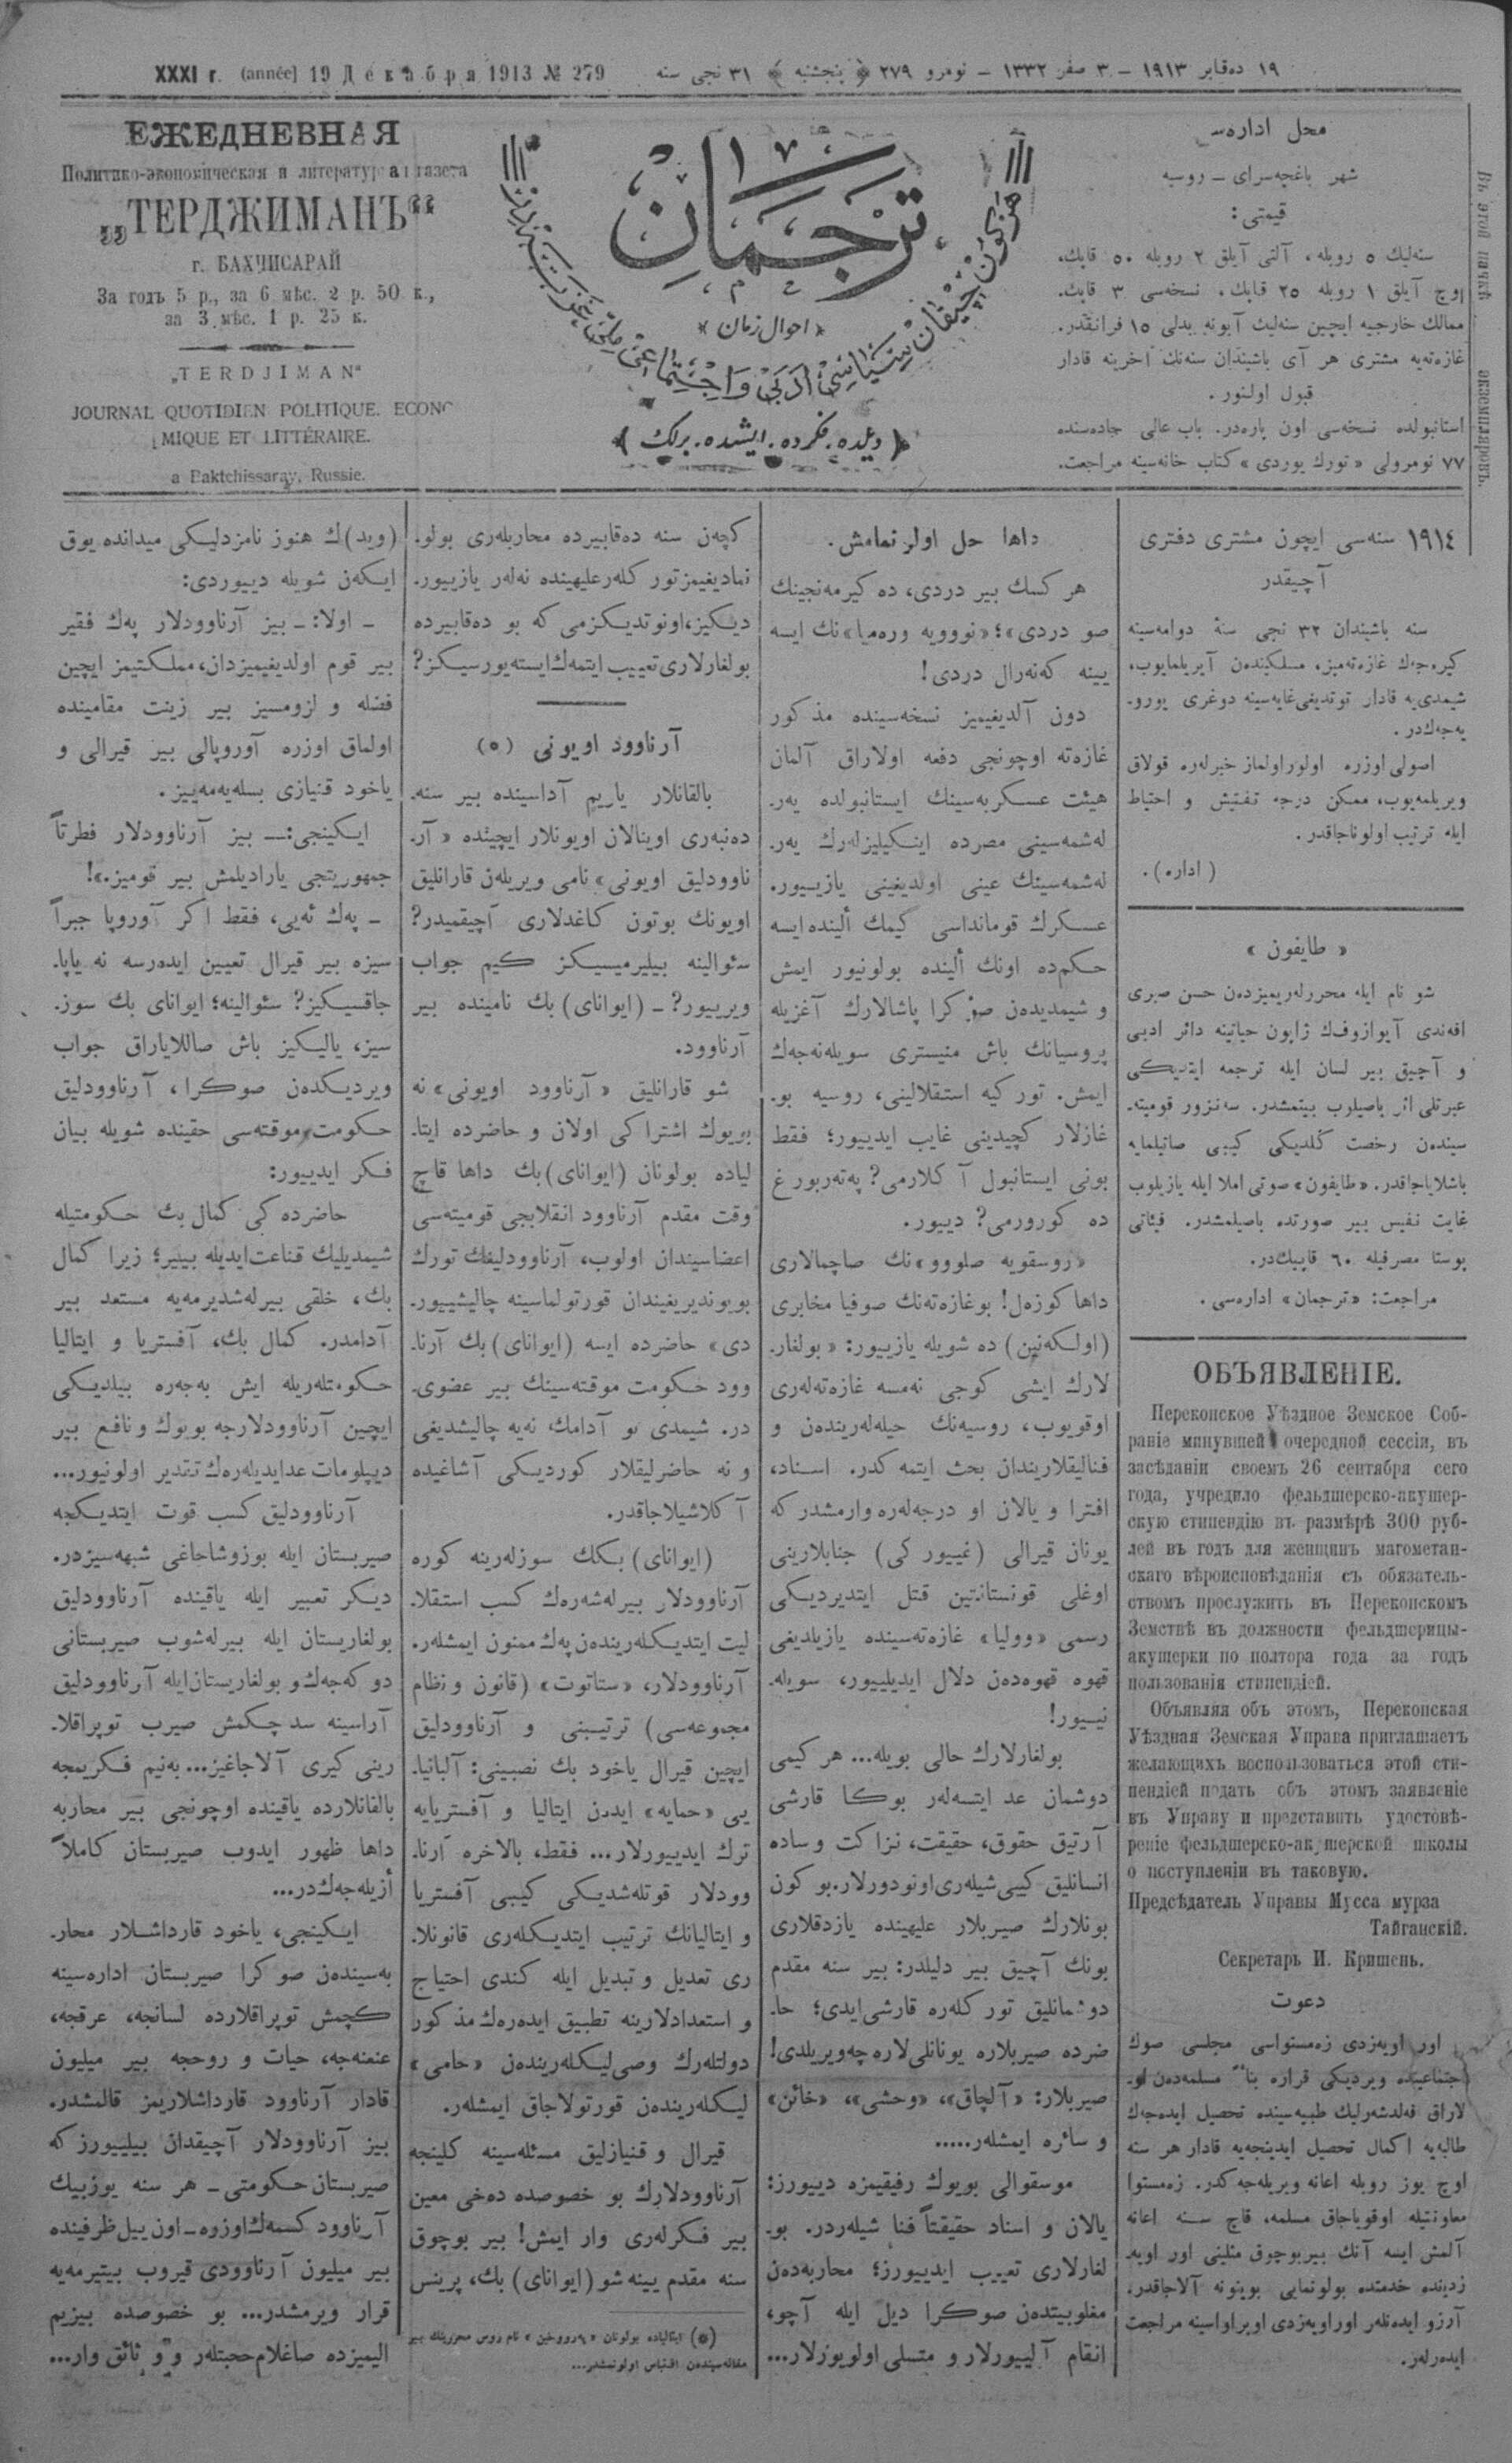 XXXI г. (année) 19 Декабря 1913 № 279
١٩ دەقابر ١٩١٣ – ٣ صفر ١٣٣٢ – نومرو ٢٧٩ ﴿ پنجشنبه ﴾ ٣١ نجی سنه
ЕЖЕДНЕВНАЯ
Политико-экономическая и литератур а газета
„ТЕРДЖИМАНЪ“
г. БАХЧИСАРАЙ
За годъ 5 р., за 6 мѣс. 2 р. 50 к.,
за 3 мѣс. 1 р. 25 к.
„TERDJIMAN“
JOURNAL QUOTIDIEN POLITIQUE. ECONO
MIQUE ET LITTÉRAIRE.
a Baktchissaray, Russie.
ترجمان
«احوال زمان»
﴿ دیلده. فکرده. ایشده. برلك ﴾
محل اداره‌سی
شهر باغچه‌سرای – روسیه
قیمتی:
سنه‌لیك ٥ روبله، آلتی آیلق ٢ روبله ٥٠ قاپك،
اوچ آیلق ١ روبله ٢٥ قاپك، نسخه‌سی ٣ قاپك.
ممالك خارجیه ایچین سنه‌لیك آبونه بدلی ١٥ فرانقدر.
غازه‌ته‌یه مشتری هر آی باشندان سنه‌نك آخرینه قادار
قبول اولنور.
استانبولده نسخه‌سی اون پاره‌در. باب عالی جاده‌سنده
٧٧ نومرولی «تورك یوردی» کتاب خانه‌سینه مراجعت.
Въ этой пачкѣ экземпляровъ.
١٩١٤ سنه‌سی ایچون مشتری دفتری
آچیقدر
سنه باشندان ٣٢ نجی سنۀ دوامه‌سینه
کیره‌جه‌ك غازه‌ته‌میز، مسلکیندەن آیریلمایوب،
شیمدی‌یه قادار توتدیغی غایه‌سینه دوغری یورو‌-
یه‌جه‌کدر.
اصولی اوزره اولور اولماز خبرلەره قولاق
ویریلمه‌یوب، ممکن درجه تفتیش و احتیاط
ایله ترتیب اولوناجاقدر.
(اداره).
« طایفون »
شو نام ایله محررلەریمیزدەن حسن صبری
افەندی آیوازوفك ژاپون حیاتینه دائر ادبی
و آچیق بیر لسان ایله ترجمه ایتدیکی
عبرتلی اثر باصیلوب بیتمشدر. سەنزور قومیته‌-
سیندەن رخصت کلدیکی کیبی صاتیلمایه
باشلایاجاقدر. «طایفون» صوتی املا ایله یازیلوب
غایت نفیس بیر صورتده باصیلمشدر. فیئاتی
پوستا مصرفیله ٦٠ قاپیك‌در.
مراجعت: «ترجمان» اداره‌سی.
ОБЪЯВЛЕНІЕ.
Перекопское Уѣздное Земское Соб-
раніе минувшей очередной сессіи, въ
засѣданіи своемъ 26 сентября сего
года, учредило фельдшерско-акушер-
скую стипендію въ размѣрѣ 300 руб-
лей въ годъ для женщинъ магометан-
скаго вѣроисповѣданія съ обязатель-
ствомъ прослужить въ Перекопскомъ
Земствѣ въ должности фельдшерицы-
акушерки по полтора года за годъ
пользованія стипендіей.
Объявляя объ этомъ, Перекопская
Уѣздная Земская Управа приглашаетъ
желающихъ воспользоваться этой сти-
пендіей подать объ этомъ заявленіе
въ Управу и представить удостовѣ-
реніе фельдшерско-акушерской школы
о поступленіи въ таковую.
Предсѣдатель Управы Мусса мурза
Тайганскій.
Секретарь И. Кришень.
دعوت
اور اویەزدی زەمستواسی مجلسی صوك
اجتماعینده ویردیکی قراره بناً مسلمەدەن او-
لاراق فەلدشەرلیك طبیه‌سینده تحصیل ایدەجەك
طالبه‌یه اکمال تحصیل ایدینجه‌یه قادار هر سنه
اوچ یوز روبله اعانه ویریله‌جه‌کدر. زەمستوا
معاونتیله اوقویاجاق مسلمه، قاچ سنه اعانه
آلمش ایسه آنك بیر بوچوق مثلینی اور اویه-
زدینده خدمتده بولونمایی بوینونه آلاجاقدر.
آرزو ایدەنلەر اور اویەزدی اوپراواسینه مراجعت
ایدەرلەر.
داها حل اولونمامش.
هر کسك بیر دردی، ده کیرمەنجینك
صو دردی»؛ «نوویه ورەمیا» نك ایسه
یینه کەنەرال دردی!
دون آلدیغیمیز نسخه‌سینده مذکور
غازه‌ته اوچونجی دفعه اولاراق آلمان
هیئت عسکریه‌سینك ایستانبولده یەر-
لەشمه‌سینی مصرده اینکیلیزلەرك یەر-
لەشمه‌سینك عینی اولدیغینی یازییور.
عسکرك قومانداسی کیمك ألینده ایسه
حکم‌ده اونك ألینده بولونیور ایمش
و شیمدیدەن صوکرا پاشالارك آغزیله
پروسیانك باش منیستری سویله‌نه‌جه‌ك
ایمش. تورکیه استقلالینی، روسیه بو-
غازلار کچیدینی غایب ایدییور؛ فقط
بونی ایستانبول آکلارمی؟ پەتەربورغ
ده کورورمی؟ دییور.
«روسقویه صلووو» نك صاچمالاری
داها کوزەل! بو غازه‌ته‌نك صوفیا مخابری
(اولکەنین) ده شویله یازییور: «بولغار-
لارك ایشی کوجی نەمسه غازه‌ته‌لەری
اوقویوب، روسیه‌نك حیله‌لەریندەن و
فنالیقلاریندان بحث ایتمه‌کدر. اسناد،
افترا و یالان او درجه‌لەره وارمشدر که
یونان قیرالی (غییورکی) جنابلارینی
اوغلی قونستانتین قتل ایتدیردیکی
رسمی «وولیا» غازه‌ته‌سینده یازیلدیغی
قهوه قهوه‌دەن دلال ایدیلییور، سویله-
نییور!
بولغارلارك حالی بویله... هر کیمی
دوشمان عد ایتسه‌لەر بوکا قارشی
آرتیق حقوق، حقیقت، نزاکت و ساده
انسانلیق کیبی شیلەری اونودورلار. بو کون
بونلارك صیربلار علیهینده یازدقلاری
بونك آچیق بیر دلیلدر: بیر سنه مقدم
دوشمانلیق تورکلەره قارشی ایدی؛ حا-
ضرده صیربلاره یونانلی‌لاره چەویریلدی!
صیربلار: «آلچاق»، «وحشی»، «خائن»
و سائره ایمشلەر.....
موسقوالی بویوك رفیقیمزه دییورز:
یالان و اسناد حقیقتاً فنا شیلەردر. بو-
لغارلاری تعییب ایدییورز؛ محاربه‌دەن
مغلوبیتدەن صوکرا دیل ایله آچو،
انقام آلییورلار و متسلی اولویورلار...
کچەن سنه دەقابیرده محاربه‌لەری بولو-
نمادیغیمز تورکلەر علیهینده نەلەر یازییور-
دیکیز، اونوتدیکزمی که بو دەقابیرده
بولغارلاری تعییب ایتمه‌ك ایسته‌یورسیکز؟
آرناوود اویونی (*)
بالقانلار یاریم آداسینده بیر سنه-
دەنبەری اوینالان اویونلار ایچینده «آر-
ناوودلیق اویونی» نامی ویریلەن قارانلیق
اویونك بوتون کاغدلاری آچیقمیدر؟
سئوالینه بیلیرمیسیکز کیم جواب
ویرییور؟ – (ایوانای) بك نامینده بیر
آرناوود.
شو قارانلیق «آرناوود اویونی» نه
بویوك اشتراکی اولان و حاضرده ایتا-
لیاده بولونان (ایوانای) بك داها قاچ
وقت مقدم آرناوود انقلابجی قومیته‌سی
اعضاسیندان اولوب، آرناوودلیغك تورك
بویوندیریغیندان قورتولماسینه چالیشییور-
دی» حاضرده ایسه (ایوانای) بك آرنا-
وود حکومت موقته‌سینك بیر عضوی-
در. شیمدی بو آدامك، نه‌یه چالیشدیغی
و نه حاضرلیقلار کوردیکی آشاغیده
آکلاشیلاجاقدر.
(ایوانای) بکك سوزلەرینه کوره
آرناوودلار بیرلەشەرەك کسب استقلا-
لیت ایتدیکلەریندەن پەك ممنون ایمشلەر.
آرناوودلار، «ستاتوت» (قانون و نظام
مجموعه‌سی) ترتیبنی و آرناوودلیق
ایچین قیرال یاخود بك نصبینی: آلبانیا-
یی «حمایه» ایدەن ایتالیا و آفستریایه
ترك ایدییورلار... فقط، بالاخره آرنا-
وودلار قوتلەشدیکی کیبی آفستریا
و ایتالیانك ترتیب ایتدیکلەری قانونلا-
ری تعدیل و تبدیل ایله کندی احتیاج
و استعدادلارینه تطبیق ایدەرەك مذکور
دولتلەرك وصی‌لیکلەریندەن «حامی»
لیکلەریندەن قورتولاجاق ایمشلەر.
قیرال و قنیازلیق مسئله‌سینه کلینجه
آرناوودلارك بو خصوصده دەخی معین
بیر فکرلەری وار ایمش! بیر بوچوق
سنه مقدم یینه شو (ایوانای) بك، پرینس
(*) ایتالیاده بولونان نام روس محررینك بیر
مقاله‌سیندەن اقتباس اولونمشدر...
(وید) ك هنوز نامزدلیکی میدانده یوق
ایکەن شویله دییوردی:
– اولا: – بیز آرناوودلار پەك فقیر
بیر قوم اولدیغیمیزدان، مملکتیمز ایچین
فضله و لزومسیز بیر زینت مقامینده
اولماق اوزره آوروپالی بیر قیرالی و
یاخود قنیازی بسله‌یه‌مه‌ییز.
ایکینجی: — بیز آرناوودلار فطرتاً
جمهوریتجی یارادیلمش بیر قومیز.»!
– پەك ئەیی، فقط اکر آوروپا جبراً
سیزه بیر قیرال تعیین ایدەرسه نه یاپا-
جاقسیکیز؟ سئوالینه؛ ایوانای بك سوز-
سیز، یالیکیز باش صاللایاراق جواب
ویردیکدەن صوکرا، آرناوودلیق
حکومت موقته‌سی حقینده شویله بیان
فکر ایدییور:
حاضرده کی کمال بك حکومتیله
شیمدیلیك قناعت ایدیله بیلیر؛ زیرا کمال
بك، خلقی بیرلەشدیرمه‌یه مستعد بیر
آدامدر. کمال بك، آفستریا و ایتالیا
حکومتلەریله ایش به‌جه‌ره بیلدیکی
ایچین آرناوودلارجه بویوك و نافع بیر
دیپلومات عد ایدیلەرەك تقدیر اولونیور...
آرناوودلیق کسب قوت ایتدیکجه
صیربستان ایله بوزوشاجاغی شبهه‌سیزدر.
دیکر تعبیر ایله یاقینده آرناوودلیق
بولغاریستان ایله بیرلەشوب صیربستانی
دوکه‌جه‌ك و بولغاریستان ایله آرناوودلیق
آراسینه سد چکمش صیرب توپراقلا-
رینی کیری آلاجاغیز... بەنیم فکریمجه
بالقانلارده یاقینده اوچونجی بیر محاربه
داها ظهور ایدوب صیربستان کاملاً
أزیله‌جه‌کدر...
ایکینجی، یاخود قارداشلار محار-
به‌سیندەن صوکرا صیربستان اداره‌سینه
کچمش توپراقلارده لسانجه، عرقجه،
عنعنه‌جه، حیات و روحجه بیر میلیون
قادار آرناوود قارداشلاریمز قالمشدر.
بیز آرناوودلار آچیقدان بیلییورز که
صیربستان حکومتی – هر سنه یوزبیك
آرناوود کسمه‌ك اوزره – اون ییل ظرفینده
بیر میلیون آرناوودی قیروب بیتیرمه‌یه
قرار ویرمشدر... بو خصوصده بیزیم
الیمیزده صاغلام حجتلەر و وثائق وار...